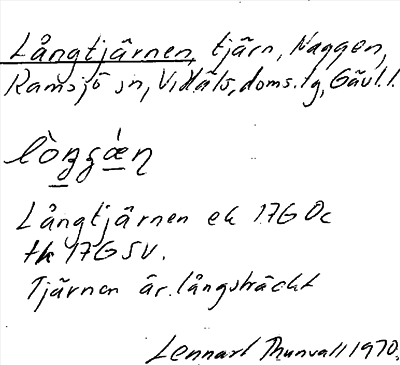 Långtjärnen, tjärn, Naggen,
Ramsjö sn, V. Häls. doms. tg, Gävl. l.
Långtjärnen ek 17G 0c
tk 17G SV.
Tjärnen är långsträckt
Lennart Thunvall 1970.